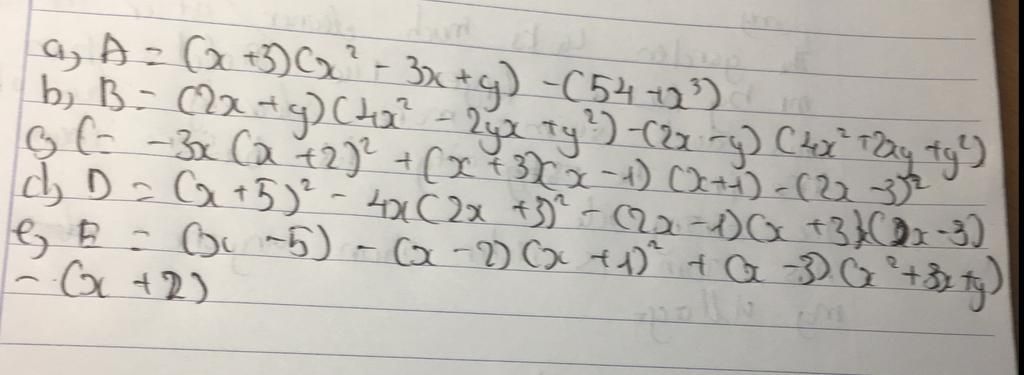 a, A = (x +3)(x² - 3x + y) - (54 + x³)
b, B = (2x + y)(4x² - 2yx + y²) - (2x - y)(4x² + 2xy + y²)
c, C = -3x(x + 2)² + (x + 3)(x - 1)(x + 1) - (2x - 3)²
d, D = (x + 5)² - 4x(2x + 3)² - (2x - 1)(x + 3)(2x - 3)
e, E = (x - 5) - (x - 2)(x + 1)² + (x - 3)(x² + 3x + y)
- (x + 2)